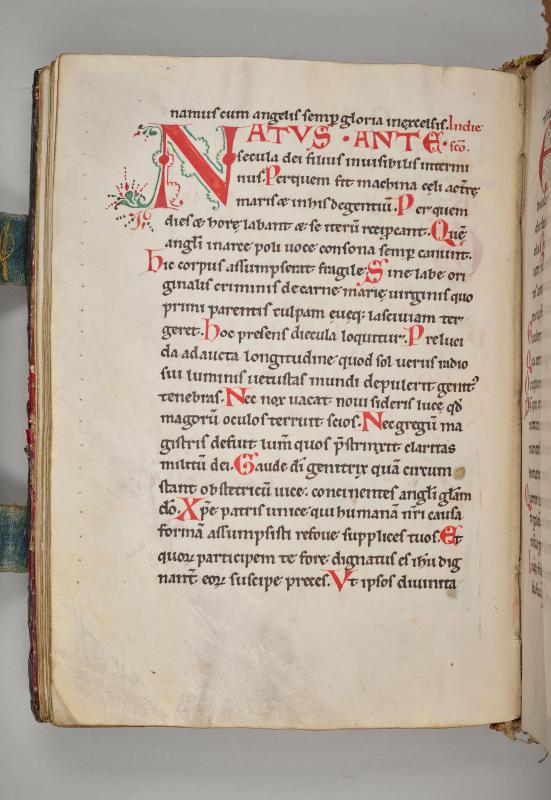 namus cum angelis semꝑ gloria inexcelsis. Indie
NATVS · ANTE · sc̄o.
secula dei filius inuisibilis intermi
nus. Perquem fit machina celi ac tr̄ę
maris & inhis degentiū. Per quem
dies & horę labant & se iterū recipeant. Quē
angl̄i inarce poli uoce consona semꝑ canunt.
hic corpus assumpserat fragile. Sine labe ori
ginalis criminis decarne marię uirginis quo
primi parentis culpam euęq; lasciuiam ter
geret. hoc presens diecula loquitur. Preluci
da adaucta longitudine quod sol uerus radio
sui luminis uetustas mundi depulerit genit᷒
tenebras. Nec nox uacat noui sideris luce qđ
magorū oculos terruit scios. Nec gregū ma
gistris defuit lum̄ quos p̄strinxit claritas
militū dei. Gaude di genitrix quā circum
stant obstetricū uice. concinentes angl̄i gl̄am
dō. Xp̄e patris unice qui humanā nr̄i causa
formā assumpsisti refoue supplices tuos. Et
quoꝝ participem te fore dignatus es ih̄u dig
nant̄ eoꝝ suscipe preces. Vt ipsos diuinita